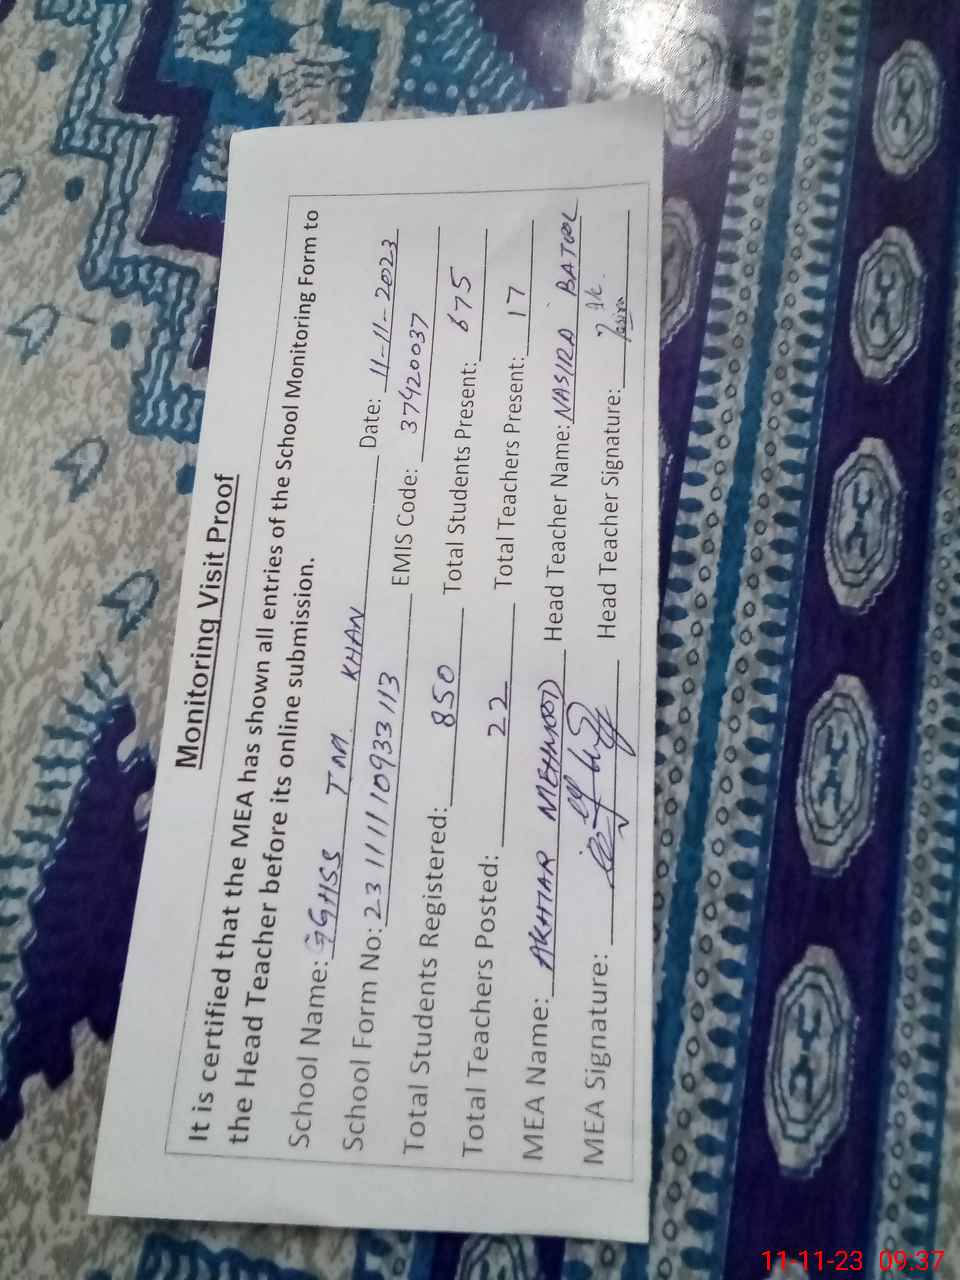 Monitoring Visit Proof
It is certified that the MEA has shown all entries of the School Monitoring Form to
the Head Teacher before its online submission.
School Name: GGHSS TMM KHAN Date: 11-11-2023
School Form No: 23 11/11 10933113 EMIS Code: 37420037
Total Students Registered: 850 Total Students Present: 675
Total Teachers Posted: 22 Total Teachers Present: 17
MEA Name: AKHTAR MEHMOOD Head Teacher Name: NASIRA BATOOL
MEA Signature: Head Teacher Signature:
11-11-23 09.37